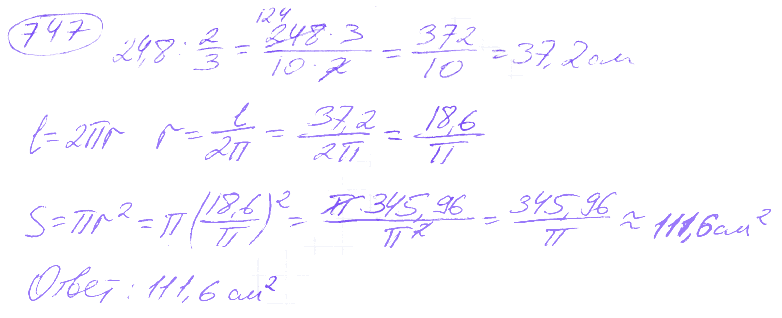 747
24,8 : 2/3 = (248 · 3)/(10 · 2) = 372/10 = 37,2 см
124
l = 2πr r = l/2π = 37,2/2π = 18,6/π
S = πr² = π(18,6/π)² = π · 345,96/π² = 345,96/π ≈ 111,6 см²
Ответ: 111,6 см²